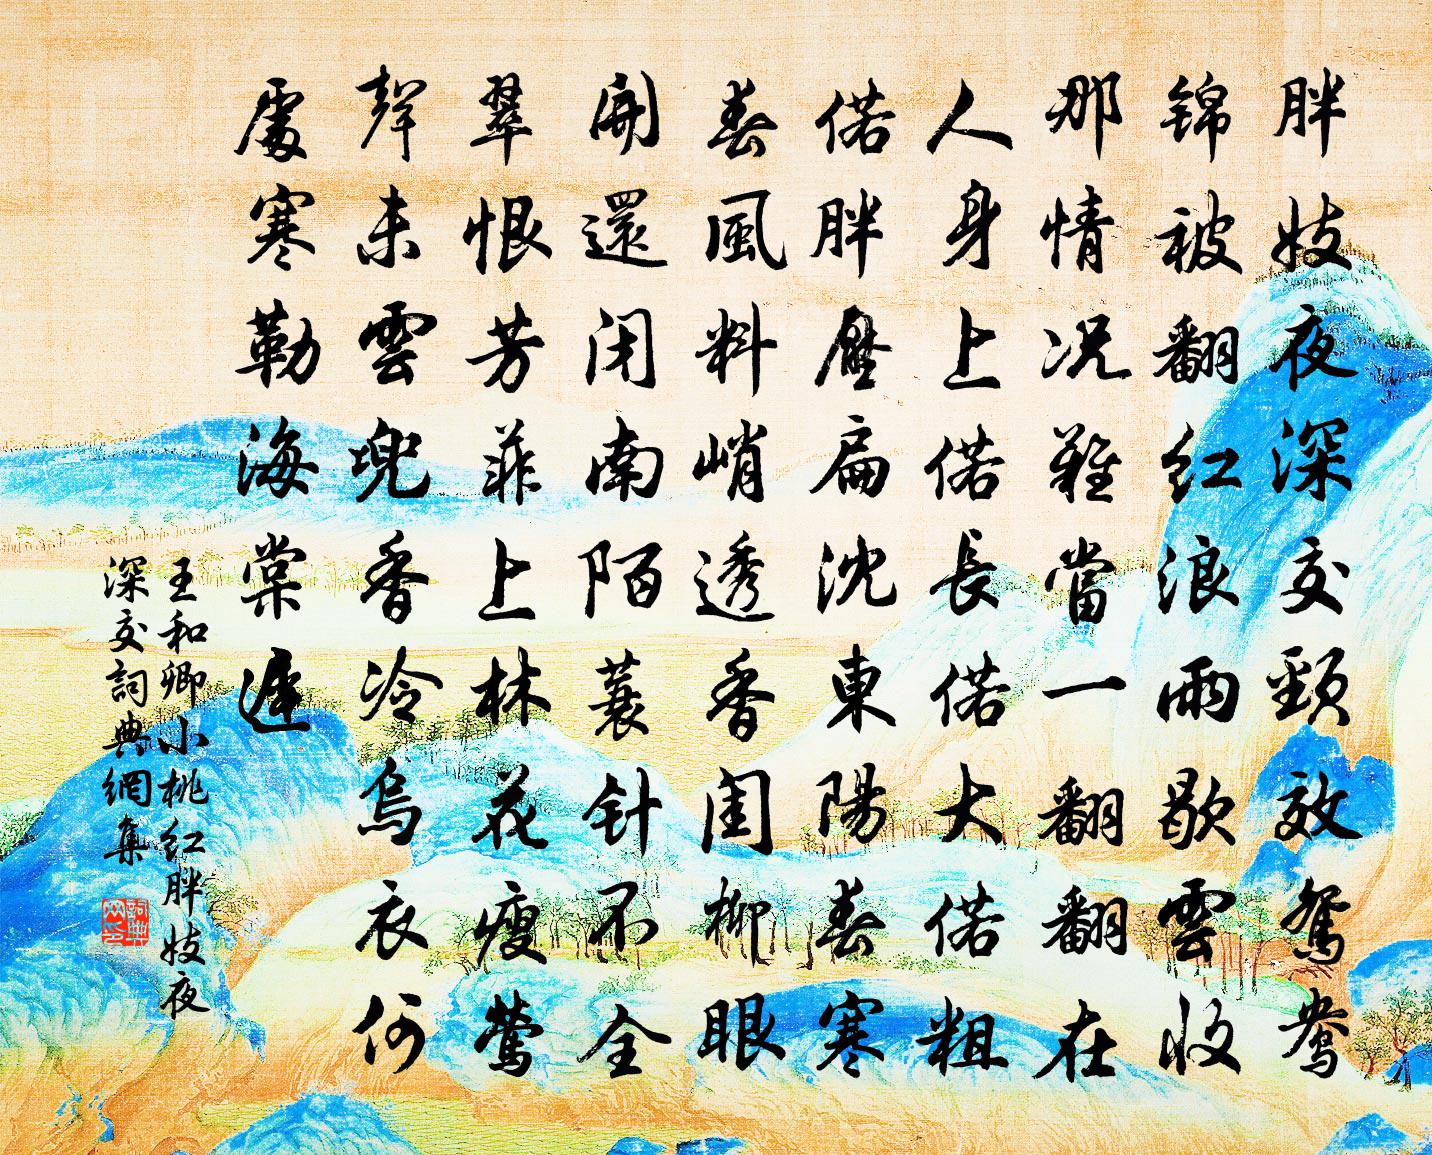 胖妓夜深交頸效鴛鴦
錦被翻紅浪雨歇雲收
那情況難當一翻翻在
人身上偌長偌大偌粗
偌胖壓扁沈東陽春寒
春風料峭透香閨柳眼
開還闭南陌蓑针不全
翠恨芳菲上林花瘦鶯
聲未雲兜香冷烏衣何
處寒勒海棠遲
王和卿小桃紅胖妓夜
深交詞典網集